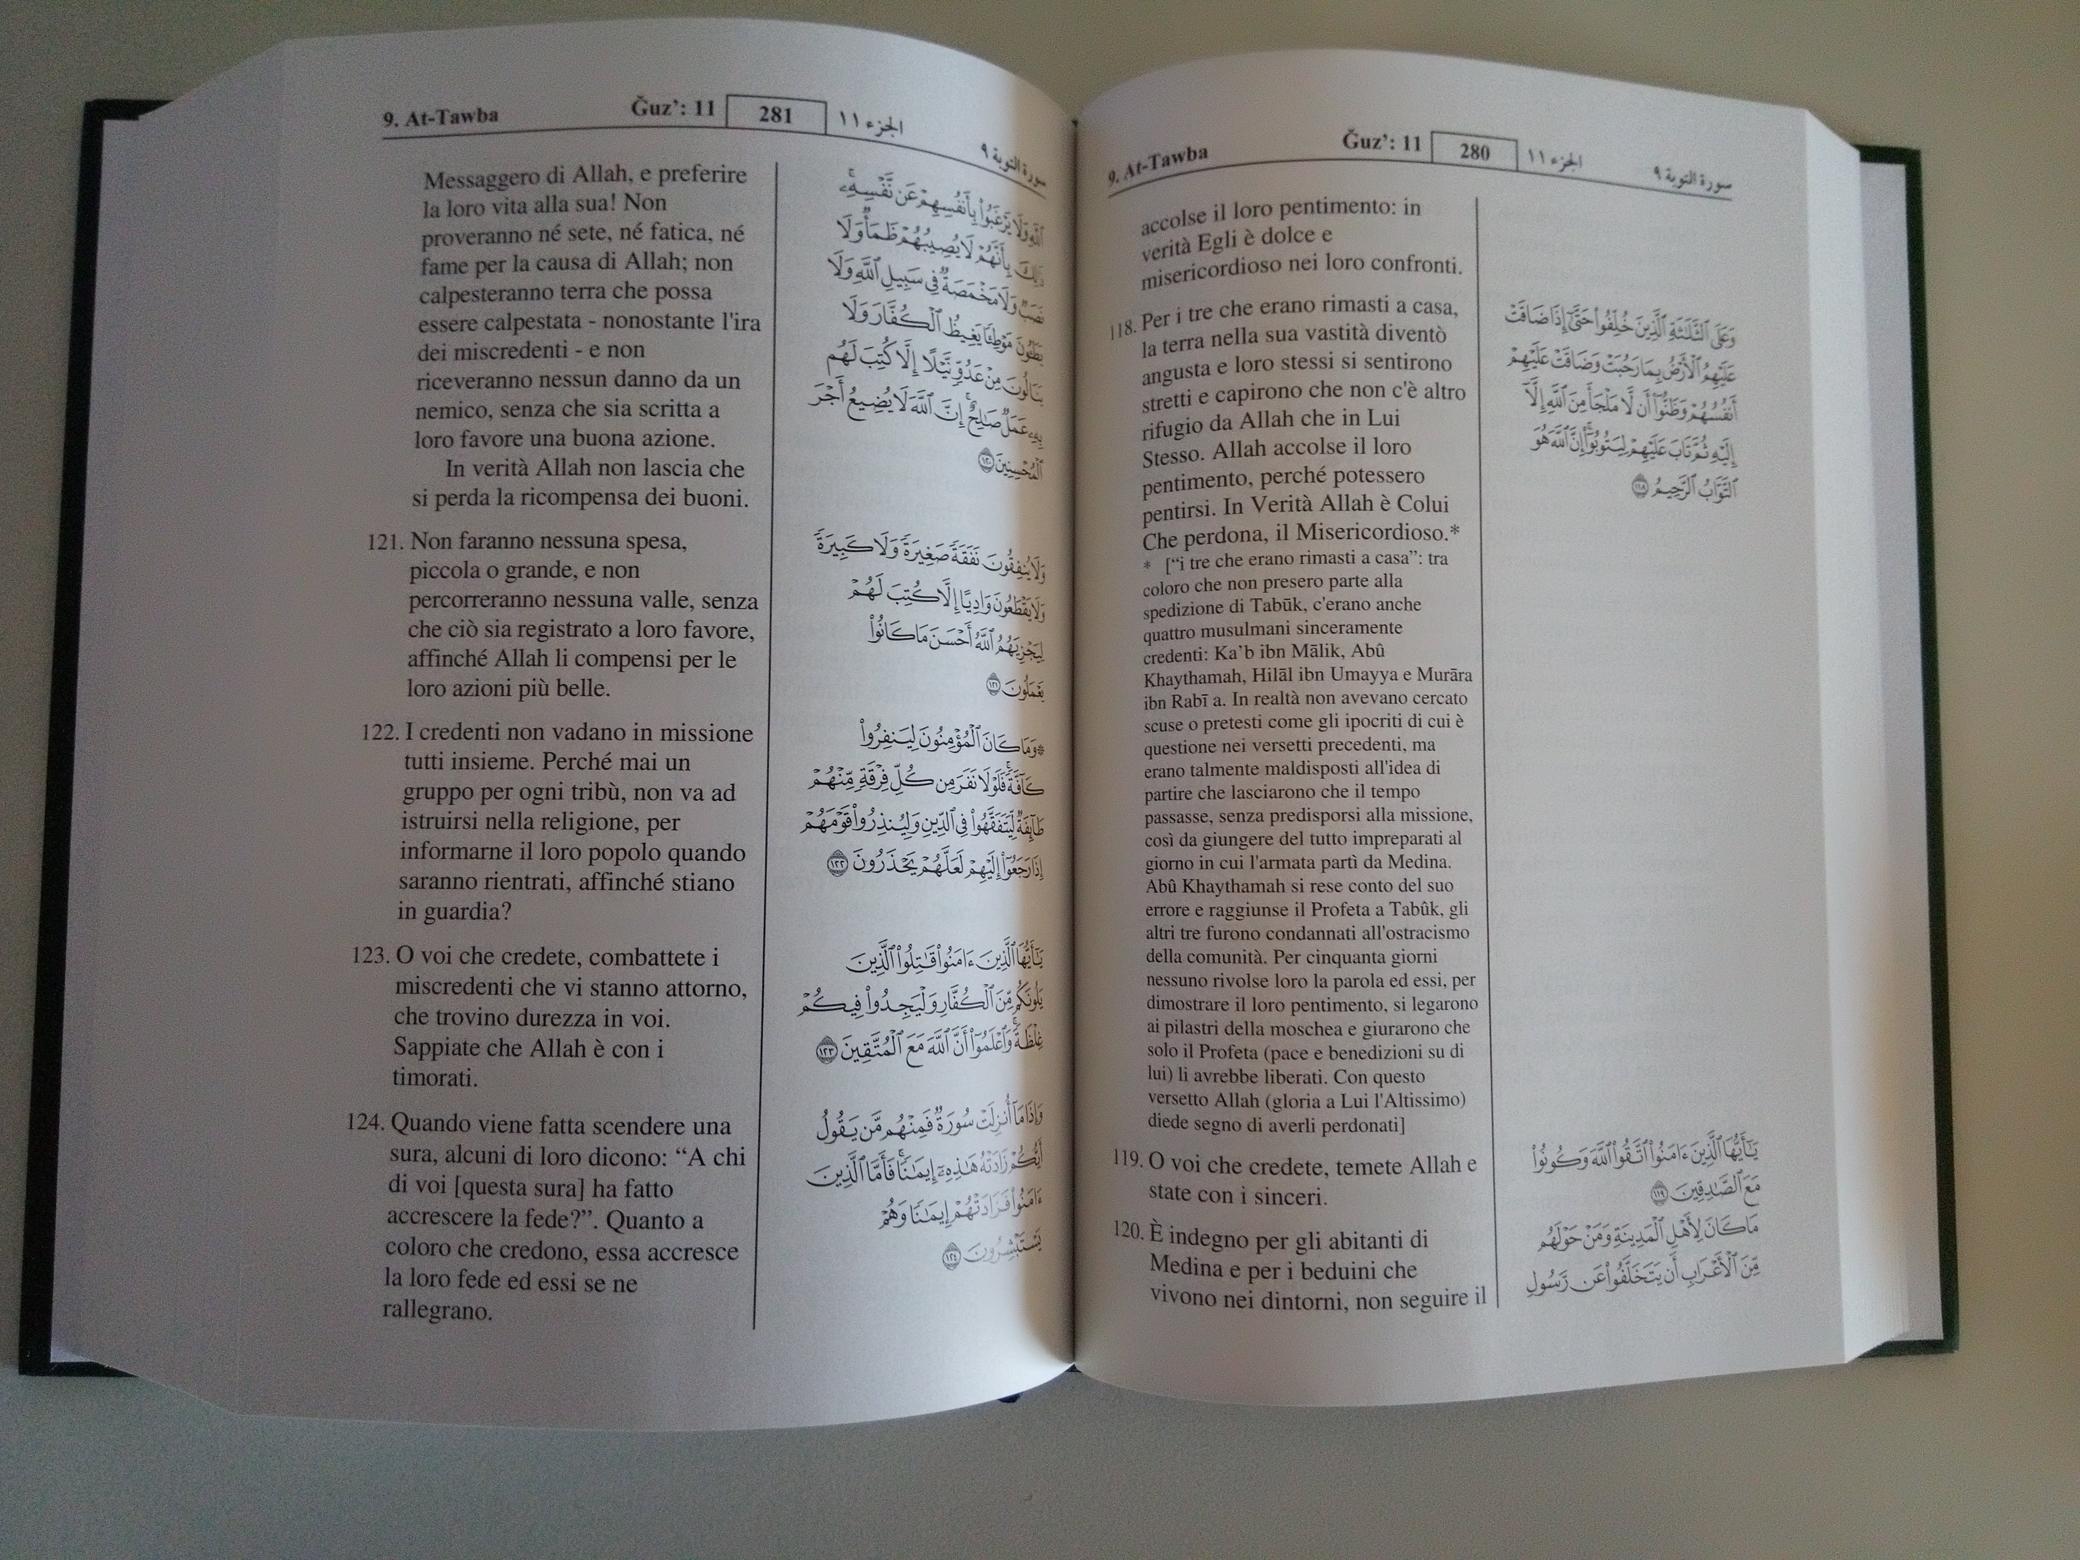 9. At-Tawba
Ğuz’: 11
280
الجزء ١١
سورة التوبة ٩
accolse il loro pentimento: in
verità Egli è dolce e
misericordioso nei loro confronti.
118. Per i tre che erano rimasti a casa,
la terra nella sua vastità diventò
angusta e loro stessi si sentirono
stretti e capirono che non c'è altro
rifugio da Allah che in Lui
Stesso. Allah accolse il loro
pentimento, perché potessero
pentirsi. In Verità Allah è Colui
Che perdona, il Misericordioso.*
* [“i tre che erano rimasti a casa”: tra
coloro che non presero parte alla
spedizione di Tabūk, c'erano anche
quattro musulmani sinceramente
credenti: Ka’b ibn Mālik, Abû
Khaythamah, Hilāl ibn Umayya e Murāra
ibn Rabī a. In realtà non avevano cercato
scuse o pretesti come gli ipocriti di cui è
questione nei versetti precedenti, ma
erano talmente maldisposti all'idea di
partire che lasciarono che il tempo
passasse, senza predisporsi alla missione,
così da giungere del tutto impreparati al
giorno in cui l'armata partì da Medina.
Abû Khaythamah si rese conto del suo
errore e raggiunse il Profeta a Tabûk, gli
altri tre furono condannati all'ostracismo
della comunità. Per cinquanta giorni
nessuno rivolse loro la parola ed essi, per
dimostrare il loro pentimento, si legarono
ai pilastri della moschea e giurarono che
solo il Profeta (pace e benedizioni su di
lui) li avrebbe liberati. Con questo
versetto Allah (gloria a Lui l'Altissimo)
diede segno di averli perdonati]
119. O voi che credete, temete Allah e
state con i sinceri.
120. È indegno per gli abitanti di
Medina e per i beduini che
vivono nei dintorni, non seguire il
وَعَلَى ٱلثَّلَٰثَةِ ٱلَّذِينَ خُلِّفُوا۟ حَتَّىٰٓ إِذَا ضَاقَتْ
عَلَيْهِمُ ٱلْأَرْضُ بِمَا رَحُبَتْ وَضَاقَتْ عَلَيْهِمْ
أَنفُسُهُمْ وَظَنُّوٓا۟ أَن لَّا مَلْجَأَ مِنَ ٱللَّهِ إِلَّآ
إِلَيْهِ ثُمَّ تَابَ عَلَيْهِمْ لِيَتُوبُوٓا۟ ۚ إِنَّ ٱللَّهَ هُوَ
ٱلتَّوَّابُ ٱلرَّحِيمُ ١١٨
يَٰٓأَيُّهَا ٱلَّذِينَ ءَامَنُوا۟ ٱتَّقُوا۟ ٱللَّهَ وَكُونُوا۟
مَعَ ٱلصَّٰدِقِينَ ١١٩
مَا كَانَ لِأَهْلِ ٱلْمَدِينَةِ وَمَنْ حَوْلَهُم
مِّنَ ٱلْأَعْرَابِ أَن يَتَخَلَّفُوا۟ عَن رَّسُولِ
9. At-Tawba
Ğuz’: 11
281
الجزء ١١
سورة التوبة ٩
Messaggero di Allah, e preferire
la loro vita alla sua! Non
proveranno né sete, né fatica, né
fame per la causa di Allah; non
calpesteranno terra che possa
essere calpestata - nonostante l'ira
dei miscredenti - e non
riceveranno nessun danno da un
nemico, senza che sia scritta a
loro favore una buona azione.
In verità Allah non lascia che
si perda la ricompensa dei buoni.
121. Non faranno nessuna spesa,
piccola o grande, e non
percorreranno nessuna valle, senza
che ciò sia registrato a loro favore,
affinché Allah li compensi per le
loro azioni più belle.
122. I credenti non vadano in missione
tutti insieme. Perché mai un
gruppo per ogni tribù, non va ad
istruirsi nella religione, per
informarne il loro popolo quando
saranno rientrati, affinché stiano
in guardia?
123. O voi che credete, combattete i
miscredenti che vi stanno attorno,
che trovino durezza in voi.
Sappiate che Allah è con i
timorati.
124. Quando viene fatta scendere una
sura, alcuni di loro dicono: “A chi
di voi [questa sura] ha fatto
accrescere la fede?”. Quanto a
coloro che credono, essa accresce
la loro fede ed essi se ne
rallegrano.
ٱللَّهِ وَلَا يَرْغَبُوا۟ بِأَنفُسِهِمْ عَن نَّفْسِهِۦ ۚ
ذَٰلِكَ بِأَنَّهُمْ لَا يُصِيبُهُمْ ظَمَأٌ وَلَا
نَصَبٌ وَلَا مَخْمَصَةٌ فِى سَبِيلِ ٱللَّهِ وَلَا
يَطَـُٔونَ مَوْطِئًا يَغِيظُ ٱلْكُفَّارَ وَلَا
يَنَالُونَ مِنْ عَدُوٍّ نَّيْلًا إِلَّا كُتِبَ لَهُم
بِهِۦ عَمَلٌ صَٰلِحٌ ۚ إِنَّ ٱللَّهَ لَا يُضِيعُ أَجْرَ
ٱلْمُحْسِنِينَ ١٢٠
وَلَا يُنفِقُونَ نَفَقَةً صَغِيرَةً وَلَا كَبِيرَةً
وَلَا يَقْطَعُونَ وَادِيًا إِلَّا كُتِبَ لَهُمْ
لِيَجْزِيَهُمُ ٱللَّهُ أَحْسَنَ مَا كَانُوا۟
يَعْمَلُونَ ١٢١
۞ وَمَا كَانَ ٱلْمُؤْمِنُونَ لِيَنفِرُوا۟
كَآفَّةً ۚ فَلَوْلَا نَفَرَ مِن كُلِّ فِرْقَةٍ مِّنْهُمْ
طَآئِفَةٌ لِّيَتَفَقَّهُوا۟ فِى ٱلدِّينِ وَلِيُنذِرُوا۟ قَوْمَهُمْ
إِذَا رَجَعُوٓا۟ إِلَيْهِمْ لَعَلَّهُمْ يَحْذَرُونَ ١٢٢
يَٰٓأَيُّهَا ٱلَّذِينَ ءَامَنُوا۟ قَٰتِلُوا۟ ٱلَّذِينَ
يَلُونَكُم مِّنَ ٱلْكُفَّارِ وَلْيَجِدُوا۟ فِيكُمْ
غِلْظَةً ۚ وَٱعْلَمُوٓا۟ أَنَّ ٱللَّهَ مَعَ ٱلْمُتَّقِينَ ١٢٣
وَإِذَا مَآ أُنزِلَتْ سُورَةٌ فَمِنْهُم مَّن يَقُولُ
أَيُّكُمْ زَادَتْهُ هَٰذِهِۦٓ إِيمَٰنًا ۚ فَأَمَّا ٱلَّذِينَ
ءَامَنُوا۟ فَزَادَتْهُمْ إِيمَٰنًا وَهُمْ
يَسْتَبْشِرُونَ ١٢٤